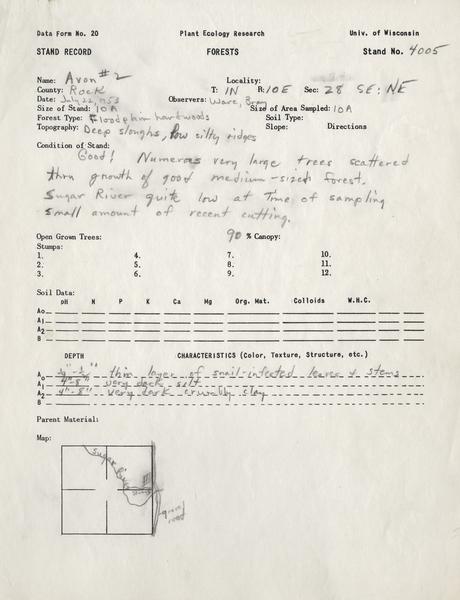 Data Form No. 20 Plant Ecology Research Univ. of Wisconsin
STAND RECORD FORESTS Stand No. 4005
Name: Avon #2 Locality:
County: Rock T: 1N R: 10E Sec: 28 SE: NE
Date: July 22, 1953 Observers: Ware,
Size of Stand: 10 A Size of Area Sampled: 10A
Forest Type: Floodplain hardwoods Soil Type:
Topography: Deep sloughs, low silty ridges Slope: Directions
Condition of Stand:
Good! Numerous very large trees scattered
thru growth of good medium-sized forest.
Sugar River quite low at time of sampling
small amount of recent cutting.
Open Grown Trees: 90 % Canopy:
Stumps:
1. 4. 7. 10.
2. 5. 8. 11.
3. 6. 9. 12.
Soil Data:
pH N P K Ca Mg Org. Mat. Colloids W.H.C.
A₀
A₁
A₂
B
DEPTH CHARACTERISTICS (Color, Texture, Structure, etc.)
A₀ thin layer of snail-infected leaves & stems
A₁ very dark silt
A₂ very dark crumbly clay
B
Parent Material:
Map:
Sugar River
gravel road